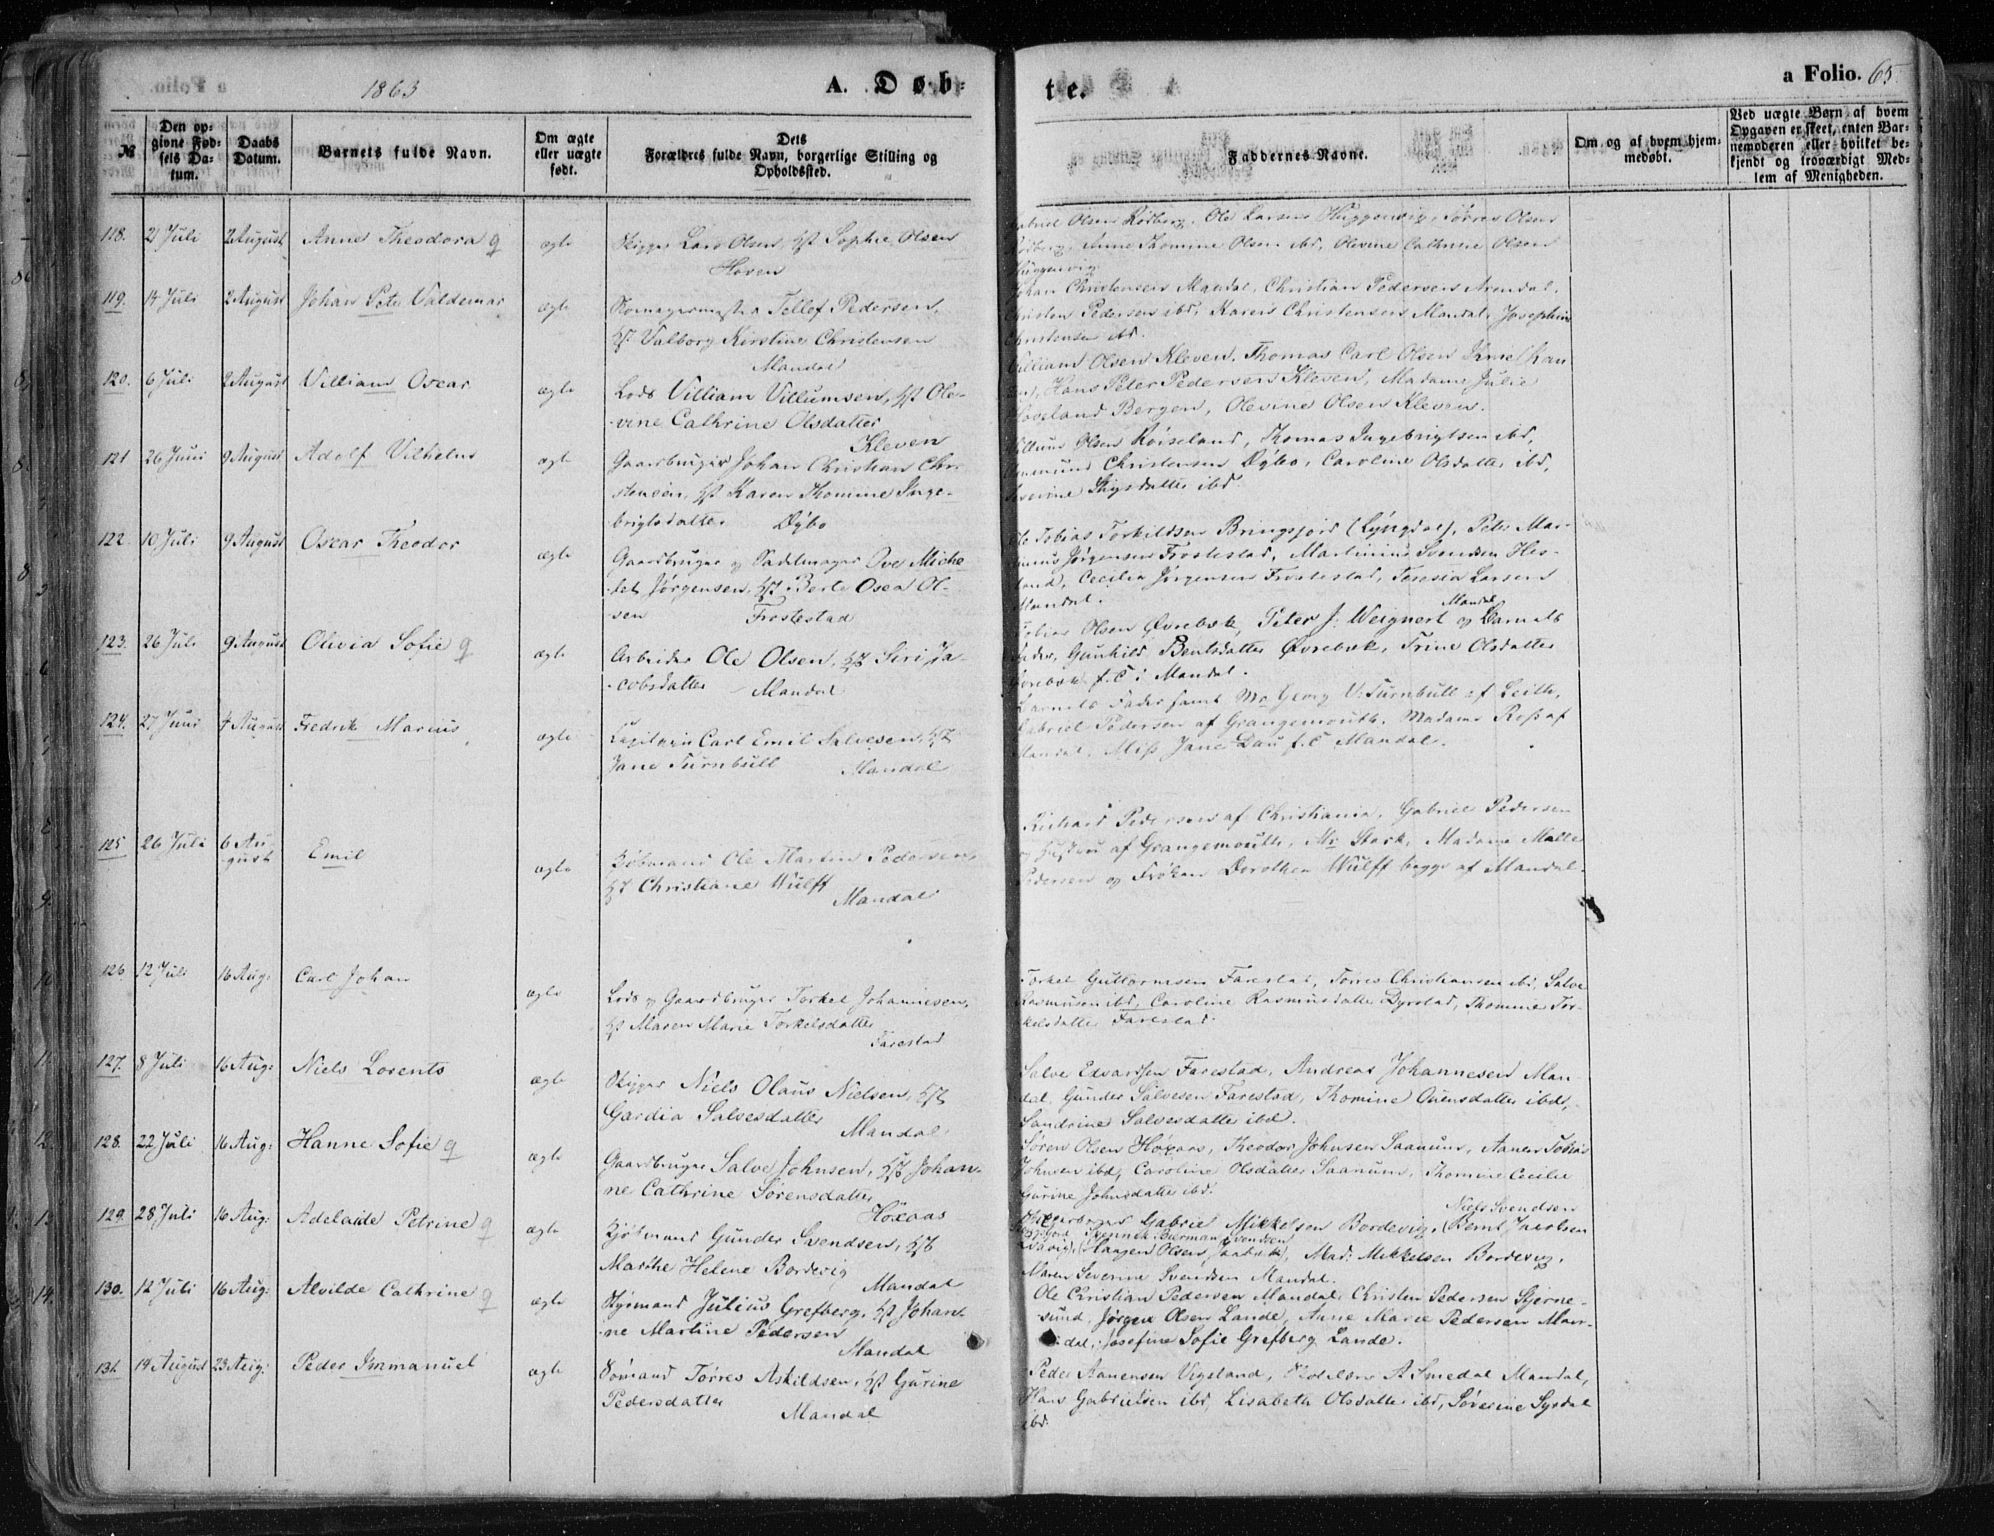 1863
A. Døb-
te.
a Folio. 65
№
Den op-
givne Fød-
sels Da-
tum.
Daabs
Datum.
Barnets fulde Navn.
Om ægte
eller uægte
født.
Dets
Forældres fulde Navn, borgerlige Stilling og
Opholdssted.
Faddernes Navne.
Om og af hvem hjem-
medøbt.
Ved uægte Børn af hvem
Opgaven er skeet, enten Bar-
nemoderen eller hvilket be-
kjendt og troværdigt Med-
lem af Menigheden.
118. 21 Juli 2 August Anne Theodora ægte Skipper Lars Olsen, Hst Sophie Olsen
Hoven
Gabriel Olsen Rødberg, Ole Larsen Huggenvig, Tørres Olsen
Rødberg, Anne Thomine Olsen ibd, Olevine Cathrine Olsen
Huggenvig
119. 14 Juli 2 August Johan Peter Valdemar ægte Skomagermester Tellef Pedersen,
Hst Valborg Kirstine Christensen
Mandal
Johan Christensen Mandal, Christian Pedersen Arendal,
Christen Pedersen ibd, Karen Christensen Mandal, Josephine
Christensen ibd.
120. 6 Juli 2 August Villiam Oscar ægte Lods Villiam Villumsen, Hst Ole-
vine Cathrine Olsdatter
Kleven
Villiam Olsen Kleven, Thomas Carl Olsen
Hans Peter Pedersen Kleven, Madame Julie
Bergen, Olevine Olsen Kleven.
121 26 Juni 9 August Adolf Vilhelm ægte Gaardbruger Johan Christian Chri-
stensen, Hst Karen Thomine Inge-
brigtsdatter Dybo
Villum Olsen Røiseland, Thomas Ingebrigtsen ibd,
Christensen Dybo, Caroline Olsdatter ibd,
Severine ibd.
122. 10 Juli 9 August Oscar Theodor ægte Gaardbruger og Sadelmager Ove Miche-
let Jørgensen, Hst Berte Osea Ol-
sen Frostestad
Tobias Torkildsen Bringsjord (Lyngdal), Peter Mar-
Jørgensen Frostestad, Martinius Svendsen Hes-
land, Cecilia Jørgensen Frostestad, Teresia Larsen
Mandal.
123. 26 Juli 9 August Olivia Sofie ægte Arbeider Ole Olsen, Hst Siri Ja-
cobsdatter Mandal
Mandal
Tobias Olsen Øvrebøk, Peter J. Weignert og Barnets
Fader, Gunhild Bentsdatter Øvrebøk, Trine Olsdatter
Øvrebøk f. C i Mandal.
124. 27 Juni 4 August Fredrik Marius ægte Capitain Carl Emil Salvesen, Hst
Jane Turnbull Mandal
Barnets Fader samt Mr Georg V. Turnbull af Leith,
Gabriel Pedersen af Grangemouth, Madame Ross af
Mandal, Miss Jane Dau f. C Mandal.
125 26 Juli 6 Au-
gust Emil ægte Kjøbmand Ole Martin Pedersen,
Hst Christiane Wulff
Mandal
Richard Pedersen af Christiania, Gabriel Pedersen
og Hustru af Grangemouth, Mr Stork, Madame Malle
Pedersen og Frøken Dorothea Wulff begge af Mandal.
126 12 Juli 16 Aug: Carl Johan ægte Lods og Gaardbruger Torkel Johannesen,
Hst Maren Marie Torkelsdatter
Farestad
Torkel Guttormsen Farestad, Tørres Christiansen ibd, Salve
Rasmusen ibd, Caroline Rasmusdatter Dyrstad, Thomine Tor-
kelsdatter Farestad.
127. 8 Juli 16 Aug: Niels Lorents ægte Skipper Niels Olaus Nielsen, Hst
Gardia Salvesdatter
Mandal
Salve Edvardsen Farestad, Andreas Johannesen Man-
dal, Gunder Salvesen Farestad, Thomine Ovensdatter ibd,
Sandrine Salvesdatter ibd.
128. 22 Juli 16 Aug: Hanne Sofie ægte Gaardbruger Salve Johnsen, Hst Johan-
ne Cathrine Sørensdatter
Høxaas
Søren Olsen Høxaas, Theodor Johnsen Saanum, Aanen Tobias
Johnsen ibd, Caroline Olsdatter Saanum, Thomine Cecilie
Gurine Johnsdatter ibd.
129. 28 Juli 16 Aug: Adelaide Petrine ægte Kjøbmand Gunder Svendsen, Hst
Marthe Helene Bordevig
Mandal
Niels Svendsen
Gabriel Mikkelsen Bordevig, Bernt Jacobsen
Haagen Olsen, Mad: Mikkelsen Bordevig,
Maren Severine Svendsen Mandal.
130. 12 Juli 16 Aug: Alvilde Cathrine ægte Styrmand Julius Grefberg, Hst Johan-
ne Martine Pedersen
Mandal
Ole Christian Pedersen Mandal, Christen Pedersen Stjerne-
sund, Jørgen Olsen Lande, Anne Marie Pedersen Man-
dal, Josefine Sofie Grefberg Lande.
131. 14 August 23 Aug: Peder Immanuel ægte Sømand Tørres Askildsen, Hst Gurine
Pedersdatter
Mandal
Peder Aanensen Vigeland, A Smedal Mandal,
Hans Gabrielsen ibd, Lisabeth Olsdatter ibd, Søverine Sysdal
ibd.